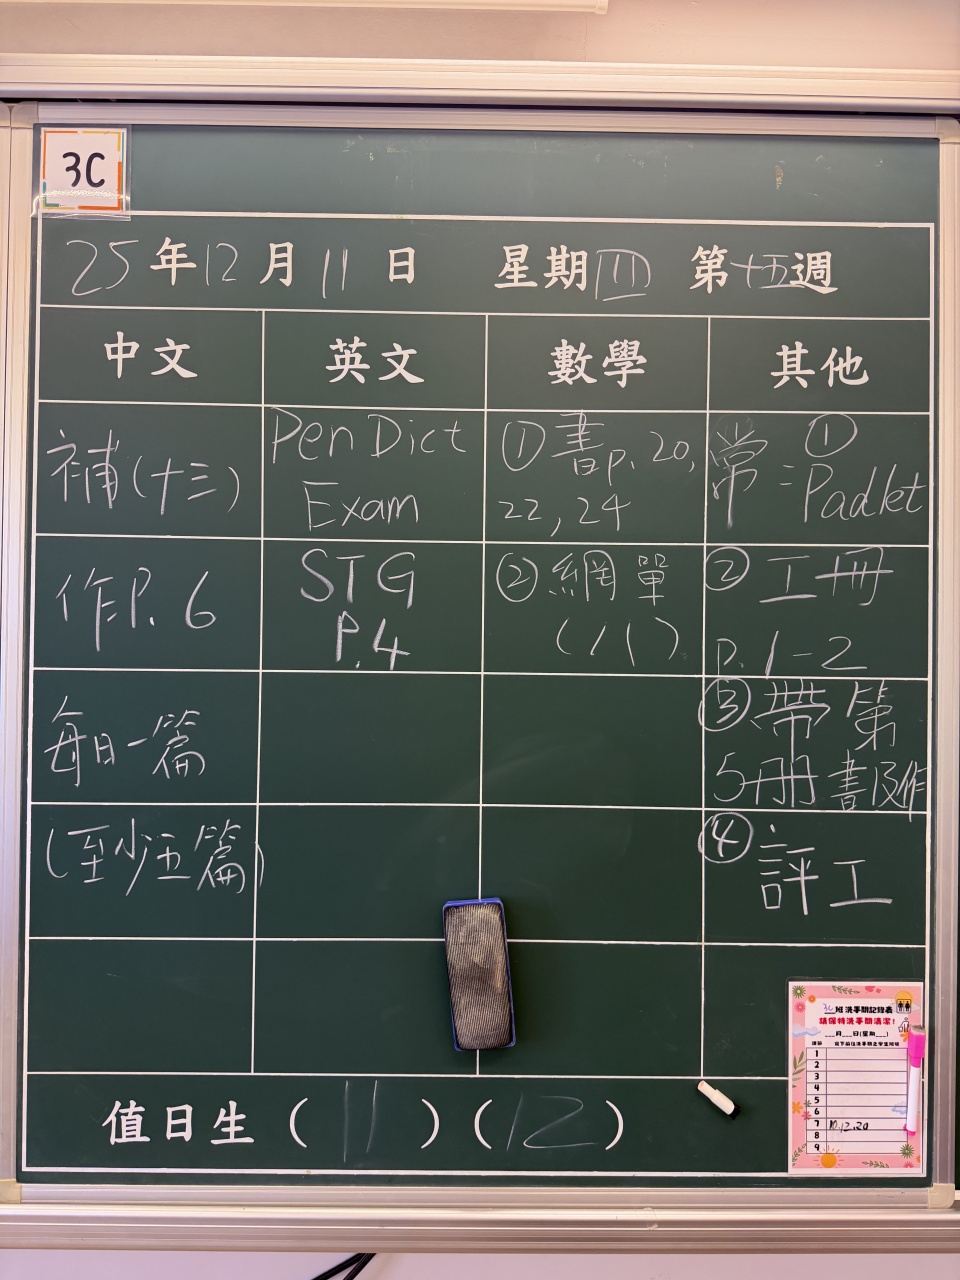 3C
25年12月11日 星期四 第十五週
中文 英文 數學 其他
補(十三)
作P.6
每日一篇
(至少五篇)
Pen Dict
Exam
STG
P.4
①書p.20,
22,24
②網單
(八)
常: ①
Padlet
②工冊
P.1-2
③帶第
5冊書及作
④評工
值日生(11)(12)
3C班洗手間記錄表
請保持洗手間清潔!
___月___日(星期___)
1
2
3
4
5
6
7 10.12.20
8
9